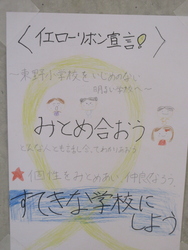 〈イエローリボン宣言！〉
〜東野小学校をいじめのない
明るい学校へ〜
みとめ合おう
★個性をみとめあい仲良くなろう。
すてきな学校に
しよう